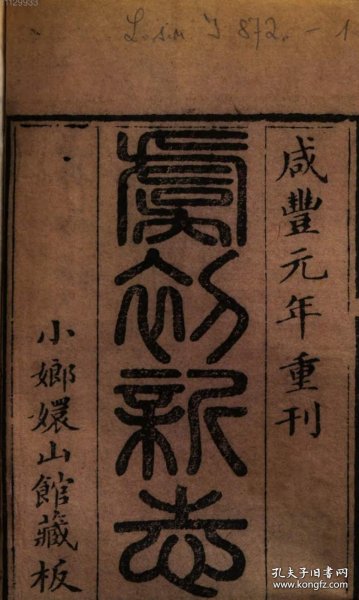 1129933
L. sin. J 872. - 1
咸豐元年重刊
虞初新志
小嫏嬛山館藏板
孔夫子旧书网